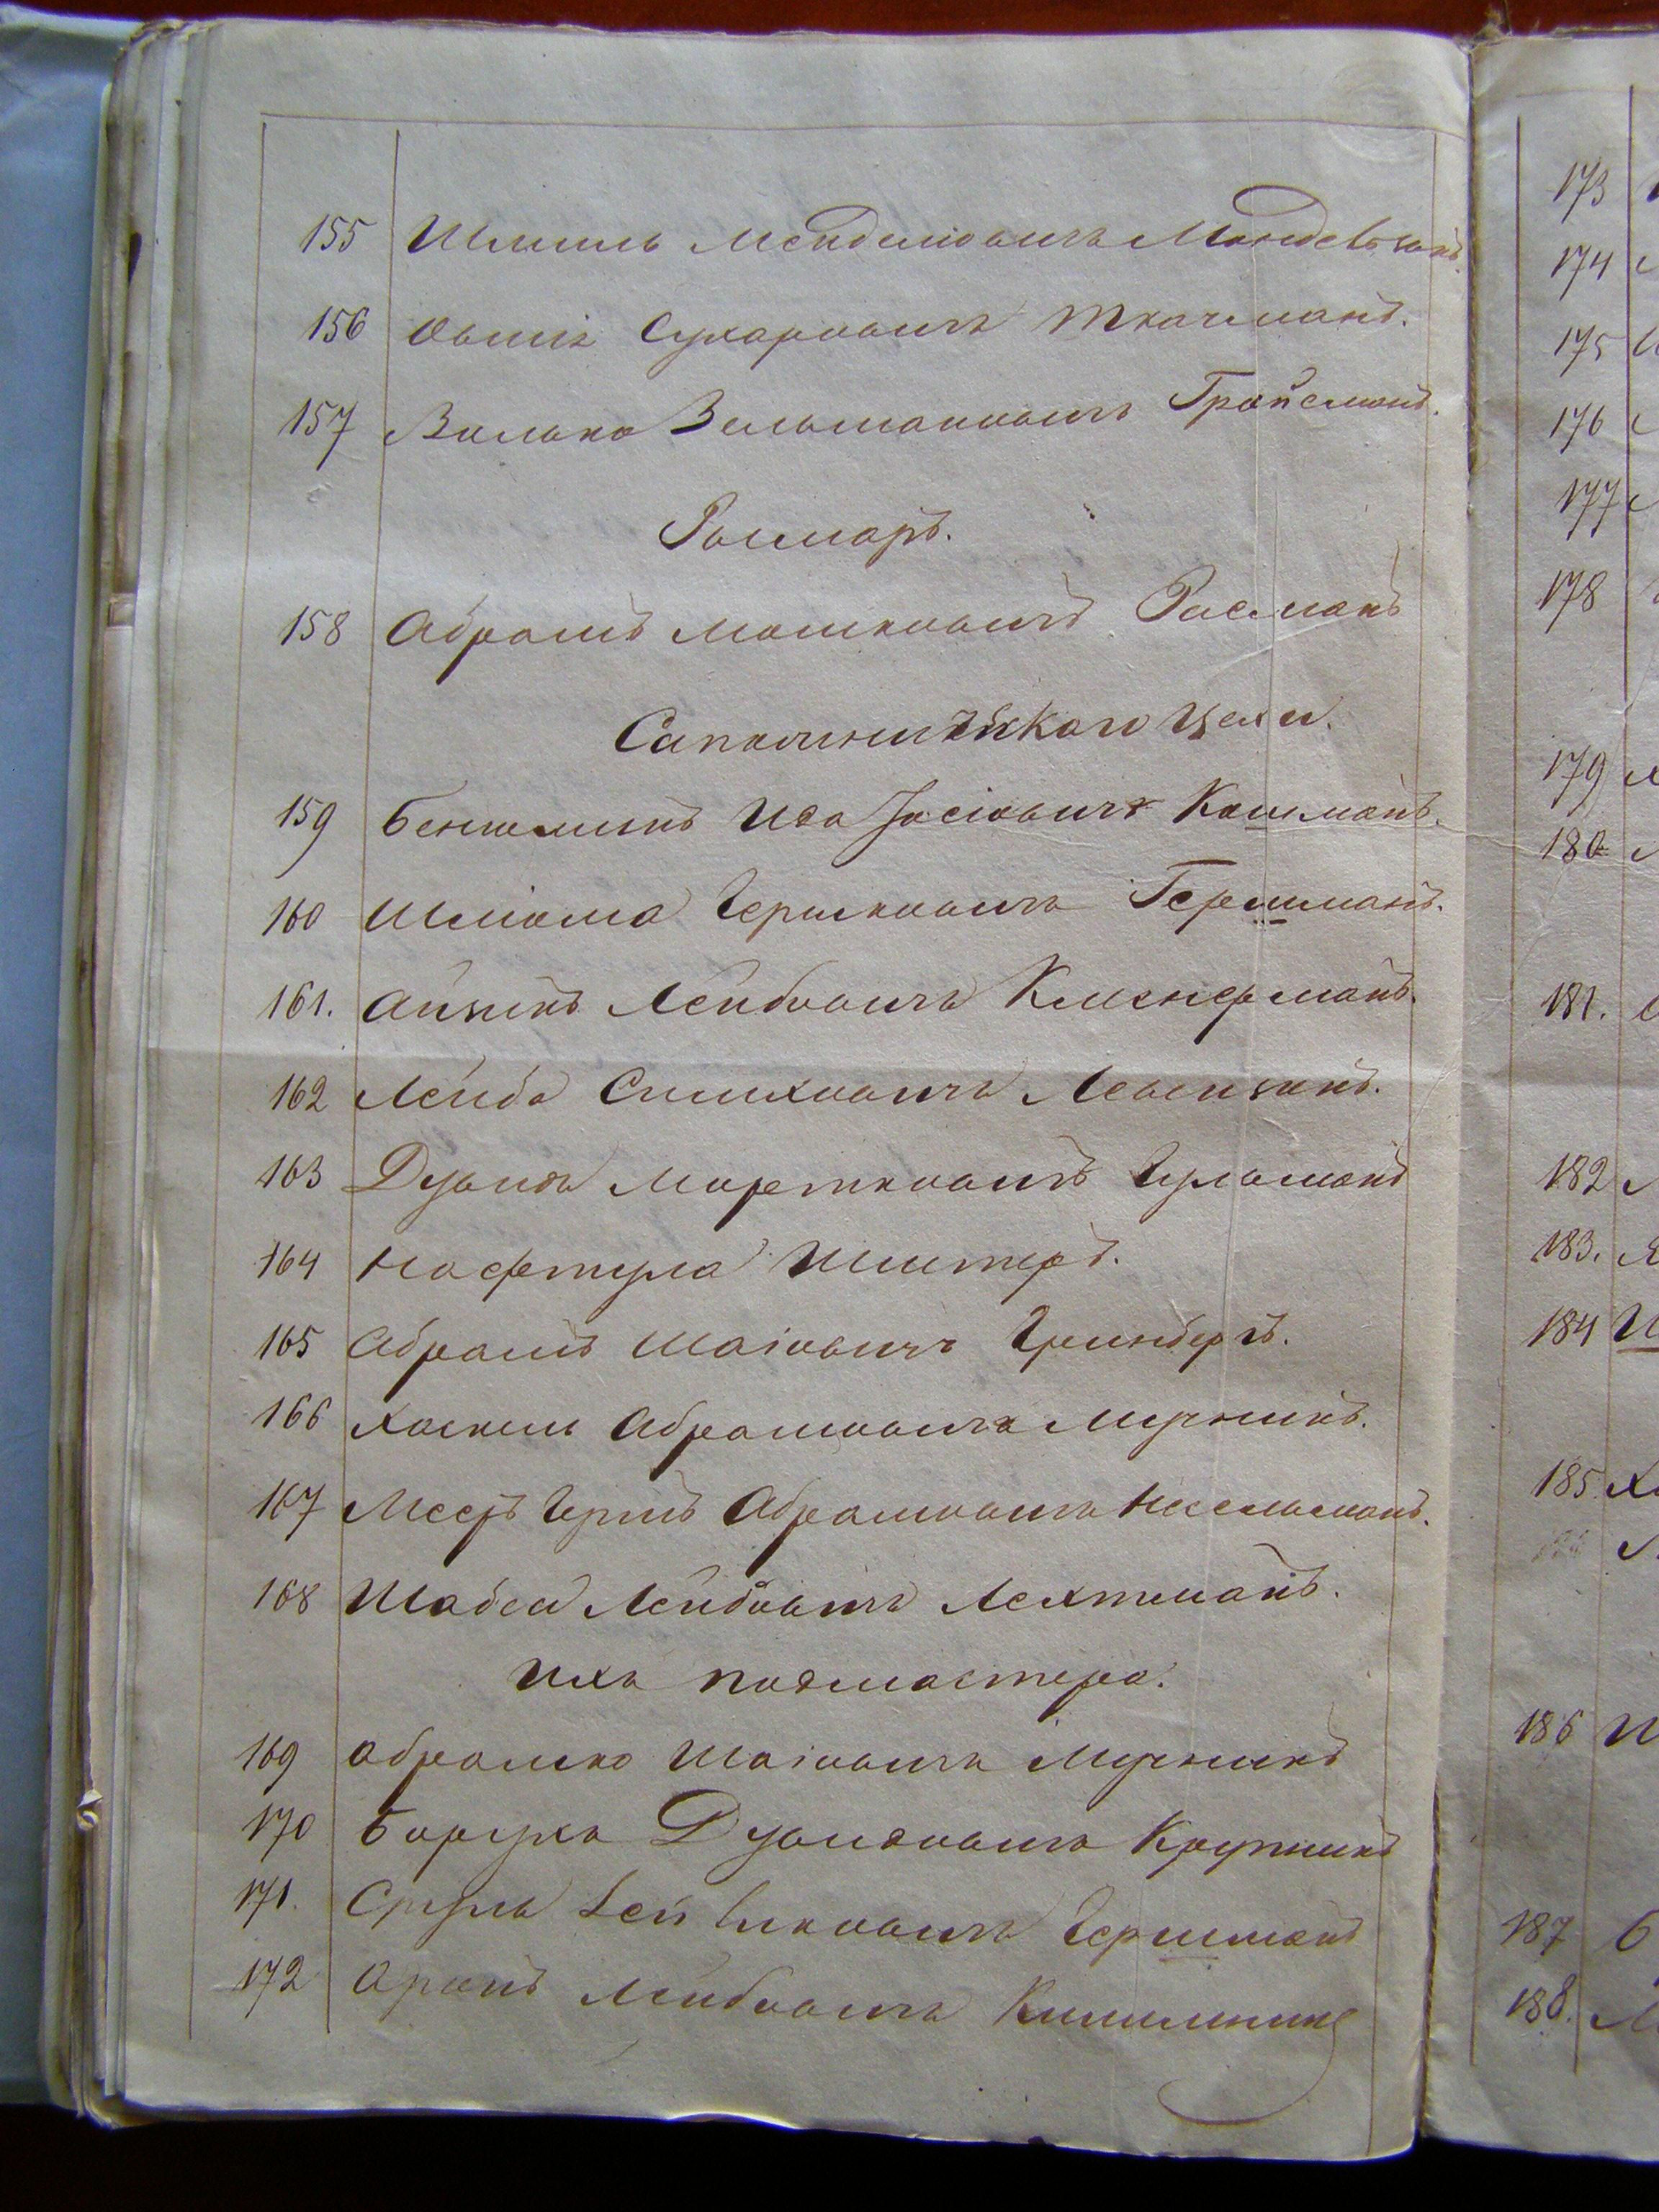 155 Шмиль Менделіовичъ Мандельзонъ.
156 Овшія Сухаровичъ Ткачманъ.
157 Волько Зельмановичъ Гройсманъ.
Рымаръ.
158 Абрамъ Мошковичъ Росманъ
Сапожницкаго Цеха.
159 Бенюминъ Иda Іосіовичъ Кошманъ.
160 Шліома Гершковичъ Гершманъ.
161. Айзикъ Лейбовичъ Клейнерманъ.
162 Лейба Симховичъ Левензонъ.
163 Дувидъ Мортковичъ Гульманъ
164 Нафтула Шистеръ.
165 Абрамъ Шаіовичъ Гринбергъ.
166 Хаскель Абрамовичъ Мучникъ.
167 Мееръ Гершъ Абрамовичъ Несельманъ.
168 Шабса Лейбовичъ Лехтманъ.
Ихъ подмастера.
169 Абрамко Шаіовичъ Мучникъ
170 Борухъ Дувидовичъ Крупникъ
171. Сруль Лейвиковичъ Гершманъ
172 Аронъ Лейбовичъ
173
174
175
176
177
178
179
180
181.
182
183.
184
185
186
187
188.